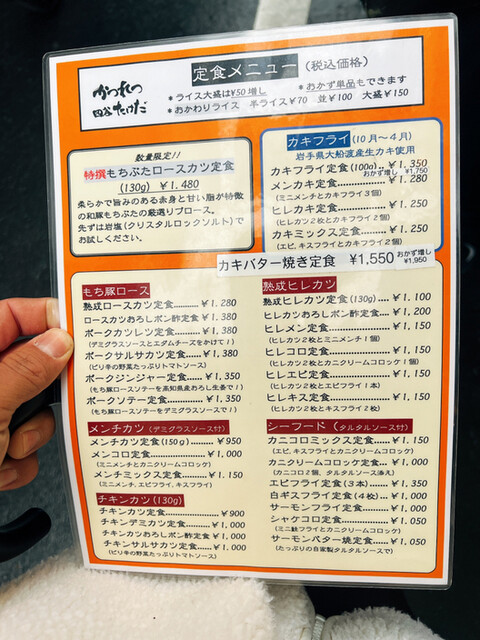 かつれつ
四谷たけだ
定食メニュー (税込価格)
*ライス大盛は¥50増し *おかず単品もできます
*おかわりライス 半ライス¥70 並¥100 大盛¥150
数量限定!!
特撰もちぶたロースカツ定食
(130g) ¥1.480
柔らかで旨みのある赤身と甘い脂が特徴
の和豚もちぶたの厳選リブロース。
先ずは岩塩(クリスタルロックソルト)で
お試しください。
カキフライ (10月~4月)
岩手県大船渡産生カキ使用
カキフライ定食(100g)..¥1.350
おかず増し ¥1,750
メンカキ定食............¥1.280
(ミニメンチとカキフライ3個)
ヒレカキ定食............¥1.250
(ヒレカツ2枚とカキフライ2個)
カキミックス定食........¥1.250
(エビ,キスフライとカキフライ2個)
カキバター焼き定食 ¥1,550 おかず増し ¥1,950
もち豚ロース
熟成ロースカツ定食..........¥1.280
ロースカツおろしポン酢定食 ¥1,380
ポークカツレツ定食..........¥1,380
(デミグラスソースとエダムチーズをかけて!)
ポークサルサカツ定食........¥1,380
(ピリ辛の野菜たっぷりトマトソース)
ポークジンジャー定食........¥1,350
(もち豚ロースソテーを高知県産おろし生姜で!)
ポークソテー定食............¥1,350
(もち豚ロースソテーをデミグラスソースで!)
メンチカツ (デミグラスソース付)
メンチカツ定食(150g)........¥950
メンコロ定食................¥1,000
(ミニメンチとカニクリームコロッケ)
メンチミックス定食..........¥1,150
(ミニメンチ,エビフライ,キスフライ)
チキンカツ(130g)
チキンカツ定食..............¥900
チキンデミカツ定食..........¥1,000
チキンカツおろしポン酢定食 ¥1,000
チキンサルサカツ定食........¥1,000
(ピリ辛の野菜たっぷりトマトソース)
熟成ヒレカツ
熟成ヒレカツ定食(130g)...¥1,100
ヒレカツおろしポン酢定食....¥1,200
ヒレメン定食................¥1,150
(ヒレカツ2枚とミニメンチ1個)
ヒレコロ定食................¥1,150
(ヒレカツ2枚とカニクリームコロッケ1個)
ヒレエビ定食................¥1,150
(ヒレカツ2枚とエビフライ1本)
ヒレキス定食................¥1,150
(ヒレカツ2枚とキスフライ2枚)
シーフード (タルタルソース付)
カニコロミックス定食........¥1,150
(エビ,キスフライとカニクリームコロッケ)
カニクリームコロッケ定食....¥1,000
(カニコロ2個 タルタルソース添え)
エビフライ定食(3本)........¥1,350
白ギスフライ定食(4枚)......¥1,000
サーモンフライ定食..........¥1,000
シャケコロ定食..............¥1,050
(ミニ鮭フライとカニクリームコロッケ)
サーモンバター焼定食........¥1,050
(たっぷりの自家製タルタルソースで)